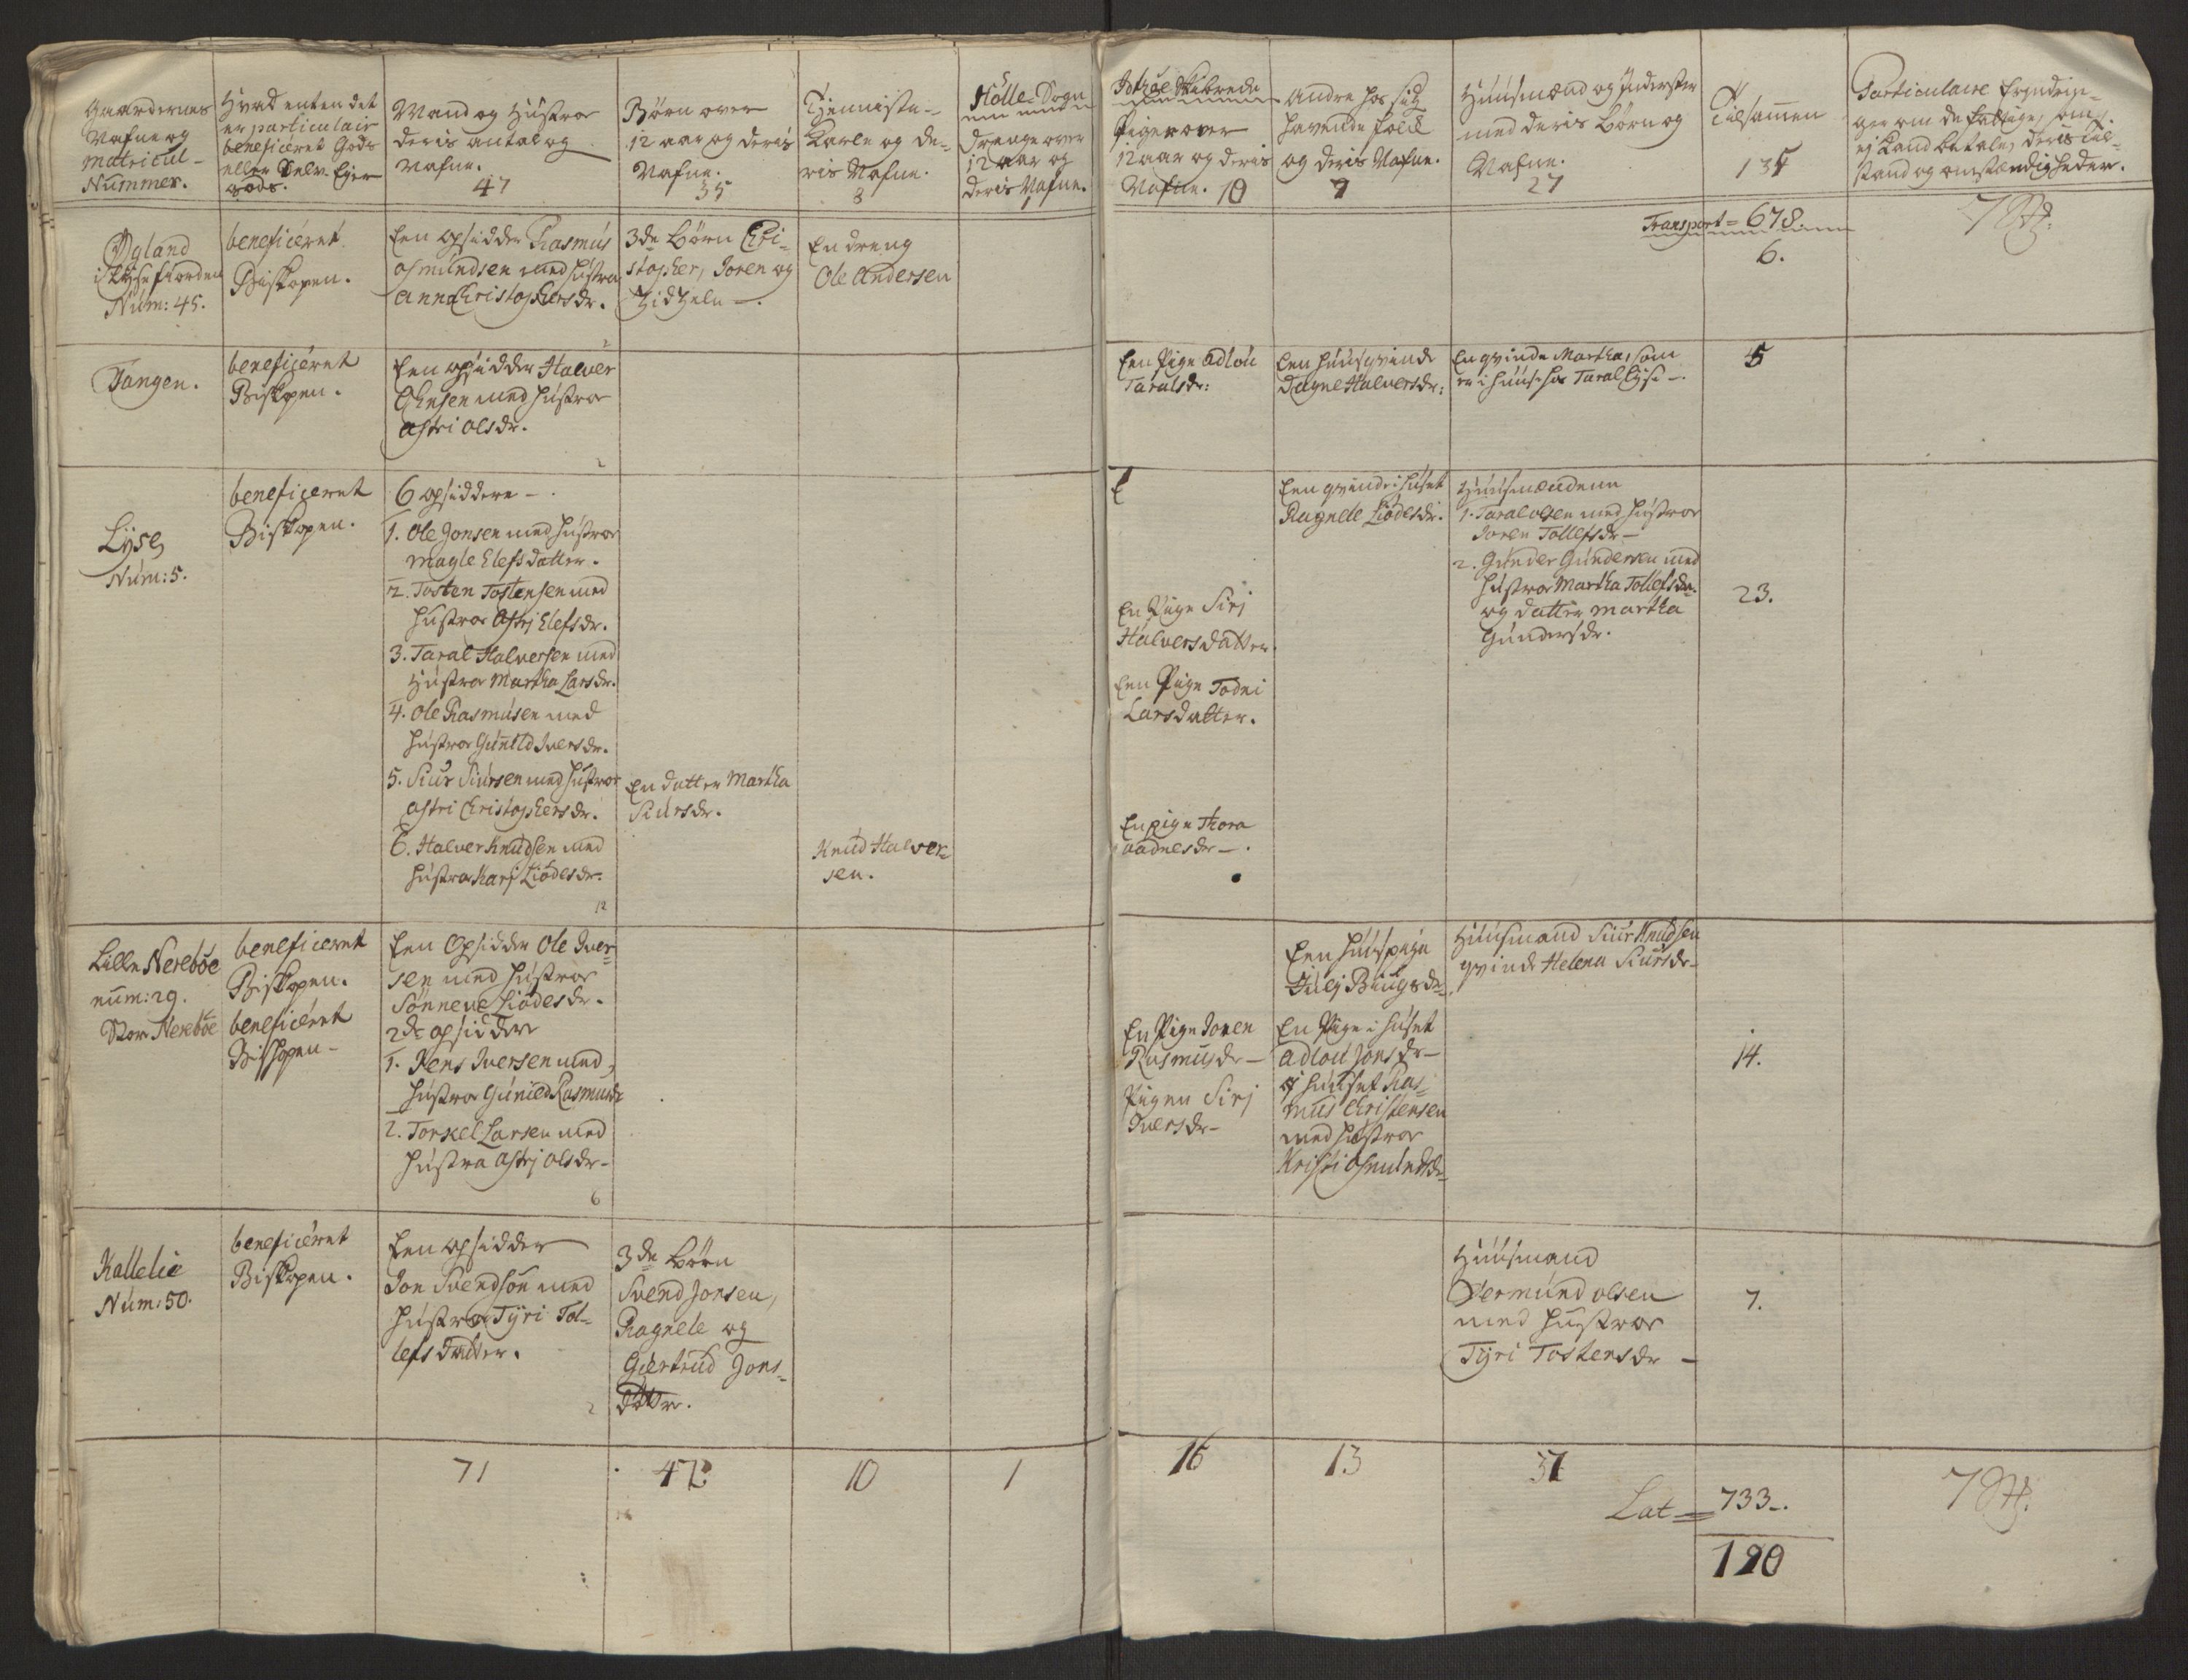 Gaardernes
Nafne og
Matricul-
Nummer.
Hvad enten det
er particulair
beneficeret Gods
eller Selv Ejer
gods.
Mand og Hustroe
deris antal og
Nafne.
47
Børn over
12 aar og deris
Nafne.
35
Tjenniste-
Karle og de-
ris Nafne.
8
Hölle-Sogn
Drenge over
12 aar og
deris Nafne.
1
Idthøe Skibrede
Piger over
12 aar og deris
Nafne. 10
Andre hos sig
havende folck
og deris Nafne.
7
Huusmænd og Inderster
med deris Børn og
Nafne.
27
Tilsamen
135
Particulaire Erindrin-
ger om de fattige, som
ej Kand betale, deris til-
stand og omstændigheder.
Transport = 678.
Øgland
i Lysefiorden
Num: 45.
beneficeret
Biskopen.
Een opsidder Rasmus
Osmundsen med hustroe
Anna Christophersdr.
2
3de Børn Chri-
stopher, Joren og
Zidzele -.
En dreng
Ole Andersen
6.
Tangen.
beneficeret
Biskopen.
Een opsidder Halver
Ellensen med hustroe
Astri Olsdr.
2
Een Pige Adlou
Taralsdr:
Een huusqvinde
Dagne Halversdr:
En qvinde Martha, som
er i huuse hos Taral Lyse -.
5
Lyse
Num: 5.
beneficeret
Biskopen.
6 opsiddere -.
1. Ole Jonsen med hustroe
Magle Elefsdatter.
2. Tosten Tostensen med
hustroe Astrj Elefsdr.
3. Taral Halversen med
Hustroe Martha Larsdr.
4. Ole Rasmusen med
hustroe Gunild Iversdr.
5. Siur Siursen med hustroe
Astri Christophersdr.
6. Halver Knudsen med
hustroe Karj Liødesdr.
12
En datter Martha
Siursdr.
Knud Halver-
sen.
E
En Pige Sirj
Halversdatter
Een Pige Todni
Larsdatter.
En pige Thora
Aadnesdr -.
Een qvinde i huset
Ragnele Liødesdr.
Huusmændene
1. Taral Olsen med hustroe
Joren Tollefsdr -
2. Gunder Gundersen med
hustroe Martha Tollefsdr.
og datter Martha
Gundersdr.
23.
Lille Nerebøe
num: 29.
Stor Nerebøe
beneficeret
Biskopen.
beneficeret
Biskopen -
Een Opsidder Ole Iver-
sen med hustroe
Sønneve Liødesdr.
2de opsiddere
1. Jens Iversen med
hustroe Gunild Rasmusdr
2. Torkel Larsen med
hustroe Astrj Olsdr -
6
En Pige Joren
Rasmusdr -
Pigen Sirj
Iversdr -
Een huuspige
Julj Baugsdr.
En Pige i huset
Adlou Jonsdr -
i huuset Ras-
mus Christensen
med hustroe
Kristi Osmundsdr
Huusmand Siur Knudsen
qvinde Helena Siursdr -
14.
Kallelie
Num: 50.
beneficeret
Biskopen.
Een opsidder
Jon Svendsøn med
hustroe Tyri Tol-
lefsdatter.
2
3de Børn
Svend Jonsen,
Ragnele og
Giertrud Jons-
dotter.
Huusmand
Vermund Olsen
med hustroe
Tyri Tostensdr -
7.
71
42
10
1
16
13
37
Lat = 733 -.
190